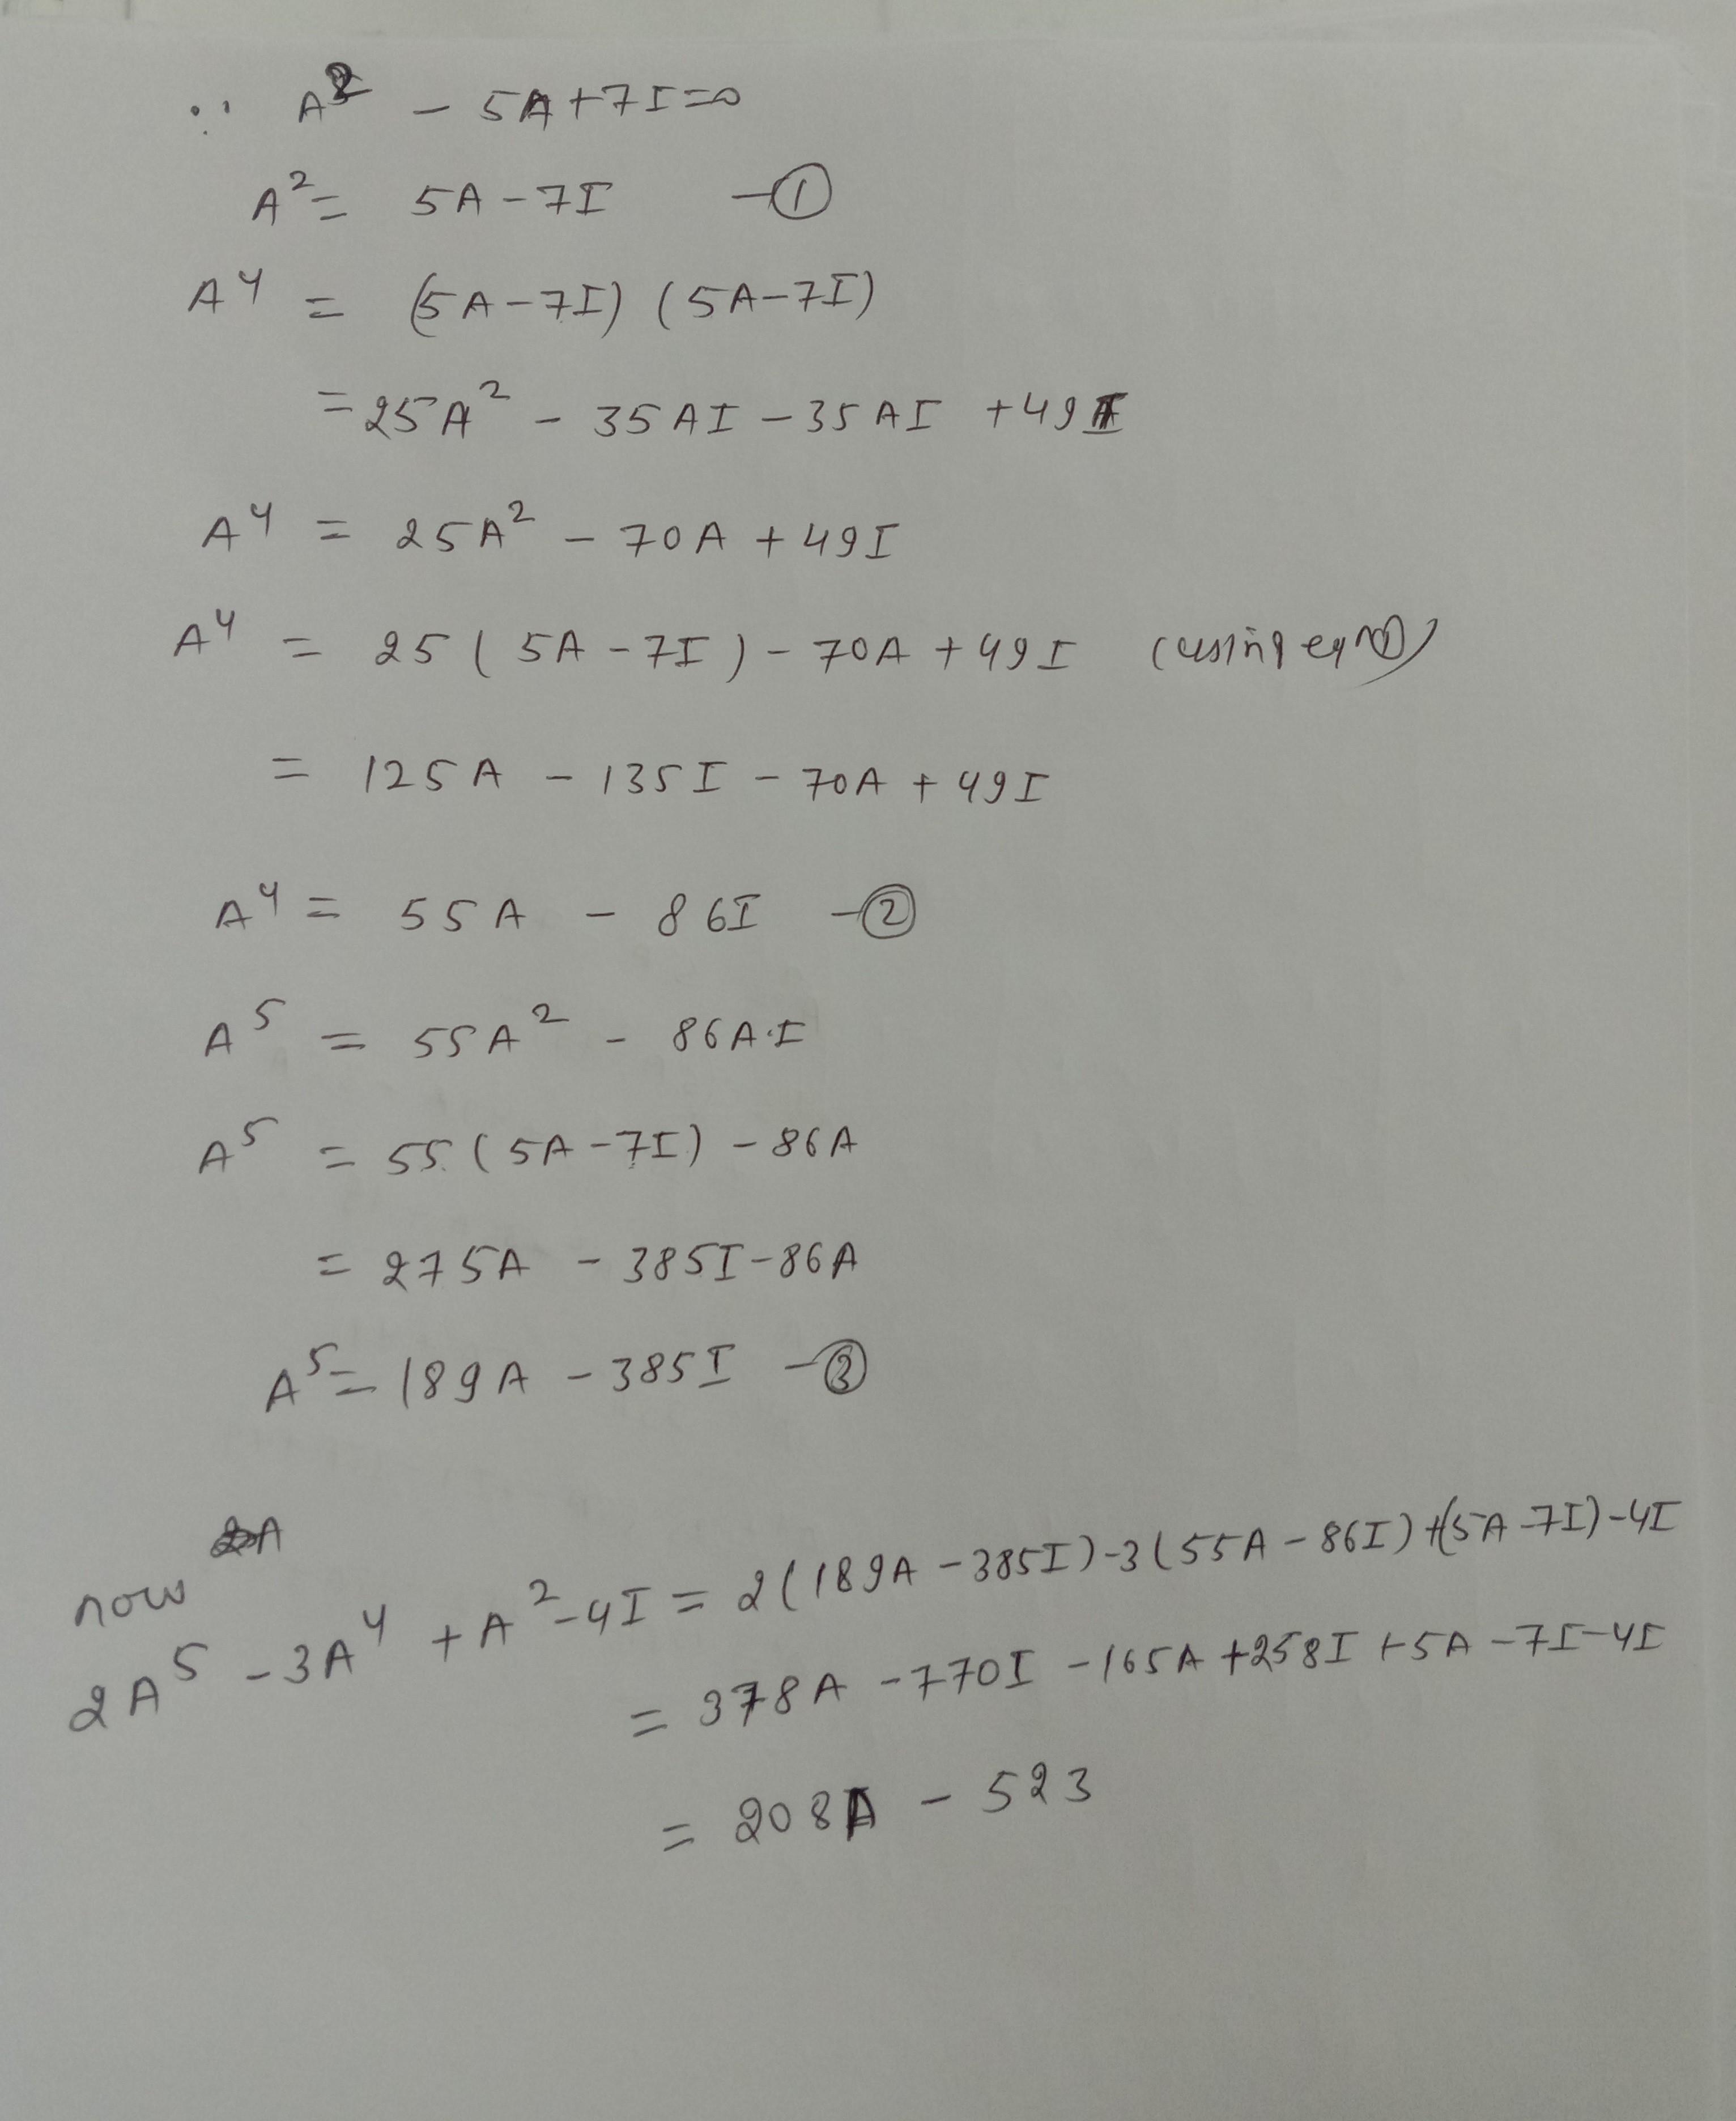 ∵ A² - 5A+7I=0
A² = 5A-7I —①
A⁴ = (5A-7I) (5A-7I)
=25A² - 35AI - 35AI +49I
A⁴ = 25A² - 70A + 49I
A⁴ = 25(5A-7I) - 70A + 49I (using eqn①)
= 125A - 135I - 70A + 49I
A⁴ = 55A - 86I —②
A⁵ = 55A² - 86A·I
A⁵ = 55(5A-7I) - 86A
= 275A - 385I-86A
A⁵ = 189A - 385I —③
now
2A⁵ - 3A⁴ + A² - 4I = 2(189A - 385I)-3(55A - 86I)+(5A-7I)-4I
= 378A - 770I - 165A +258I +5A -7I-4I
= 208A - 523